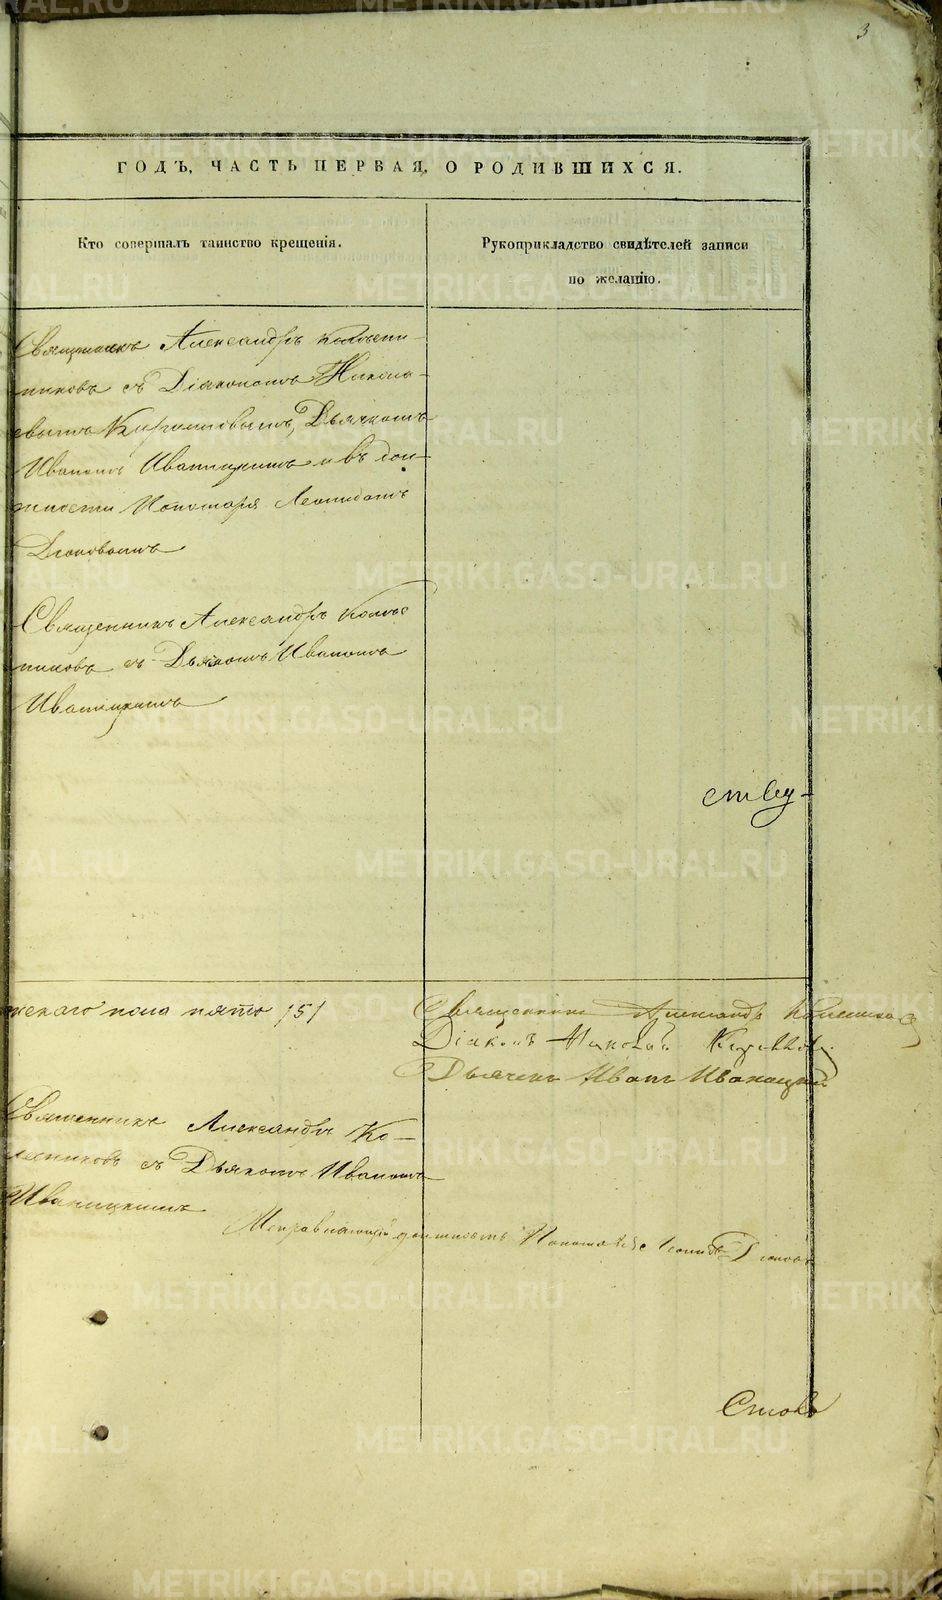 3
ГОДЪ, ЧАСТЬ ПЕРВАЯ, О РОДИВШИХСЯ.
Кто совершалъ таинство крещенія.
Рукоприкладство свидѣтелей записи
по желанію.
Священникъ Александръ Колѣсни-
никовъ съ Діакономъ Никола-
евымъ Кирилловымъ, Дьячкомъ
Иваномъ Иваницкимъ и въ дол-
жности Пономаря Леонидомъ
Священникъ Александръ Колѣс
никовъ съ Дьячкомъ Иваномъ
Иваницкимъ
ству-
женскаго пола пять /5/
Священникъ Александръ Колесников
Діаконъ Николай Кирилловъ
Дьячекъ Иванъ Иваницкий
Священникъ Александръ Ко-
лесниковъ съ Дьячкомъ Иваномъ
Иваницкимъ
Исправляющій должность Пономаря Леонидъ
METRIKI.GASO-URAL.RU